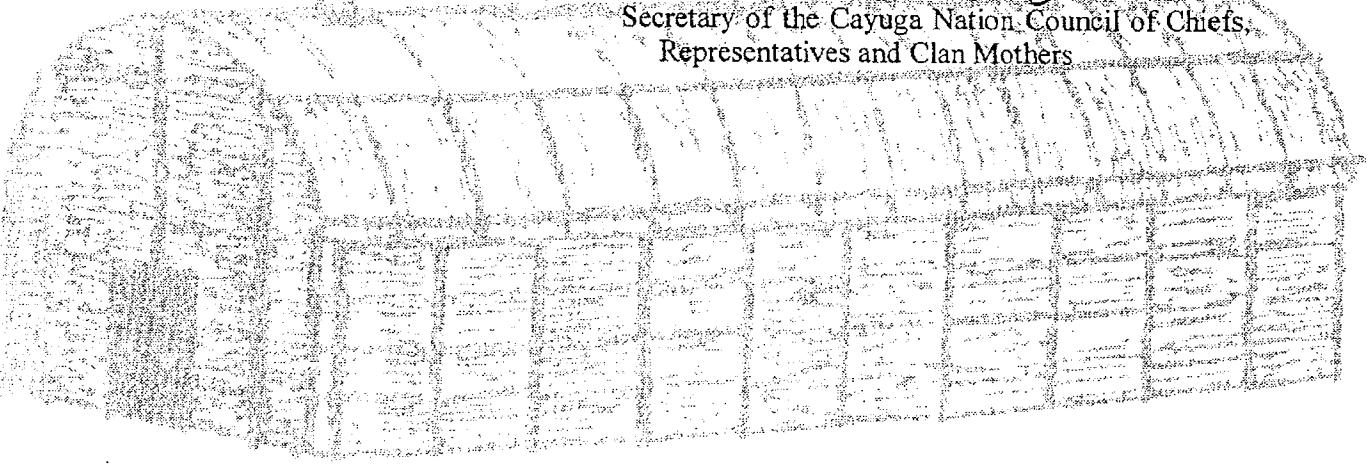 Secretary of the Cayuga Nation Council of Chiefs,
Representatives and Clan Mothers